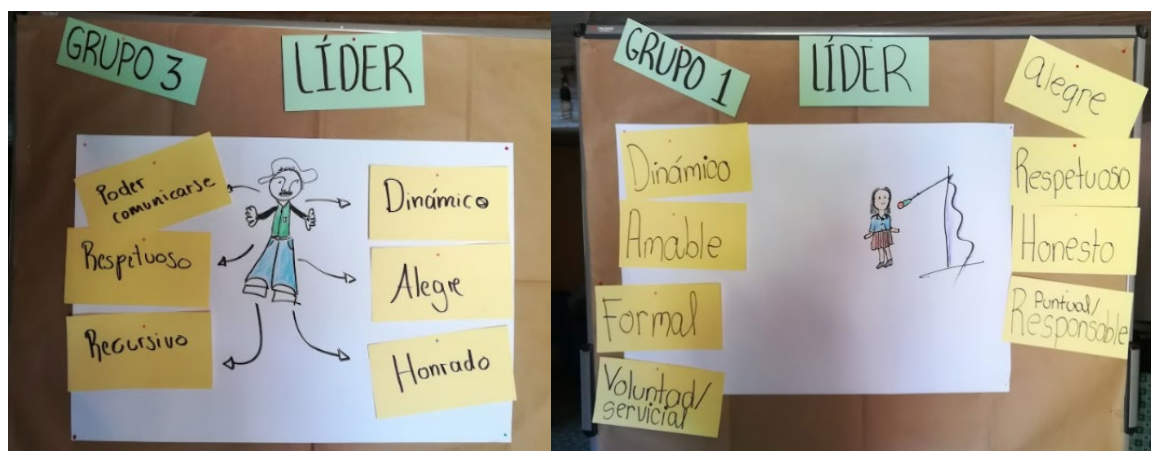 GRUPO 3
LÍDER
Poder
comunicarse
Respetuoso
Recursivo
Dinámico
Alegre
Honrado
GRUPO 1
LÍDER
Dinámico
Amable
Formal
Voluntad/
servicial
Alegre
Respetuoso
Honesto
Puntual/
Responsable